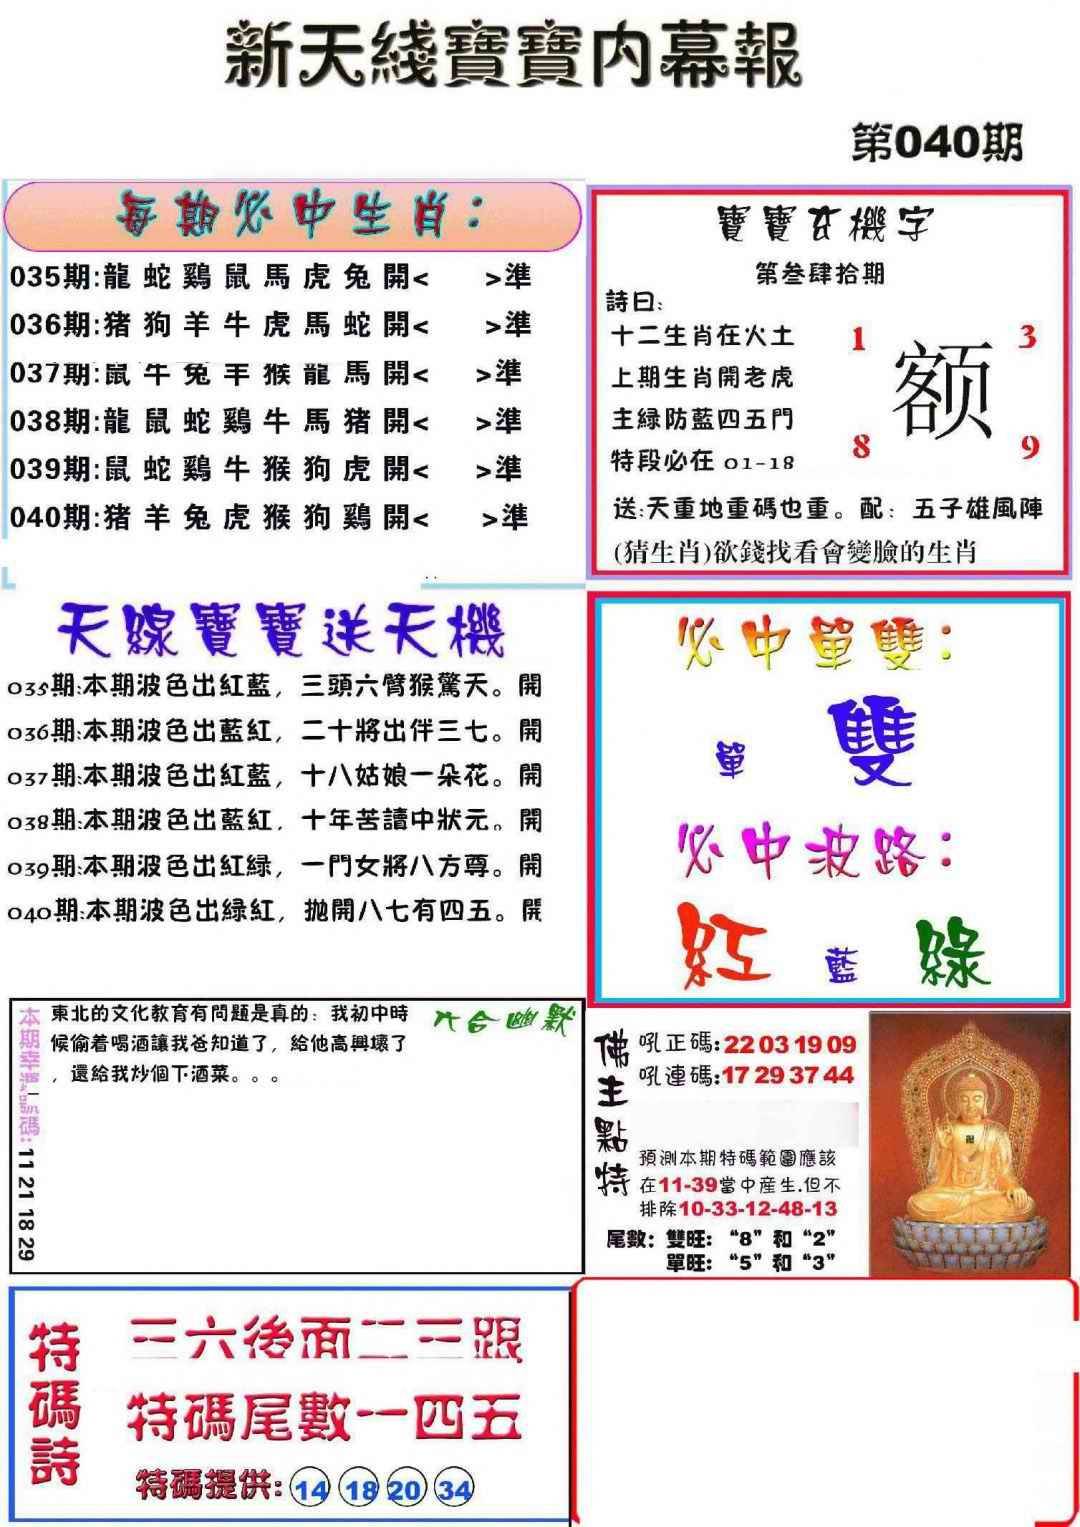 新天綫寶寶内幕報
第040期
每期必中生肖：
035期:龍 蛇 鷄 鼠 馬 虎 兔 開< >準
036期:猪 狗 羊 牛 虎 馬 蛇 開< >準
037期:鼠 牛 兔 羊 猴 龍 馬 開< >準
038期:龍 鼠 蛇 鷄 牛 馬 猪 開< >準
039期:鼠 蛇 鷄 牛 猴 狗 虎 開< >準
040期:猪 羊 兔 虎 猴 狗 鷄 開< >準
寶寶玄機字
第叁肆拾期
詩曰:
十二生肖在火土
上期生肖開老虎
主緑防藍四五門
特段必在 01-18
1 3
额
8 9
送:天重地重碼也重。配：五子雄風陣
(猜生肖)欲錢找看會變臉的生肖
天線寶寶送天機
035期:本期波色出紅藍，三頭六臂猴驚天。開
036期:本期波色出藍紅，二十將出伴三七。開
037期:本期波色出紅藍，十八姑娘一朵花。開
038期:本期波色出藍紅，十年苦讀中狀元。開
039期:本期波色出紅緑，一門女將八方尊。開
040期:本期波色出緑紅，拋開八七有四五。開
必中單雙：
單 雙
必中波路：
紅 藍 綠
本期幸運號碼: 11 21 18 29
六合幽默
東北的文化教育有問題是真的：我初中時
候偷着喝酒讓我爸知道了，給他高興壞了
，還給我炒個下酒菜。。。
佛主點特
吼正碼:22 03 19 09
吼連碼:17 29 37 44
預測本期特碼範圍應該
在11-39當中産生.但不
排除10-33-12-48-13
尾數：雙旺：“8”和“2”
單旺：“5”和“3”
特碼詩
三六後面二三跟
特碼尾數一四五
特碼提供: 14 18 20 34